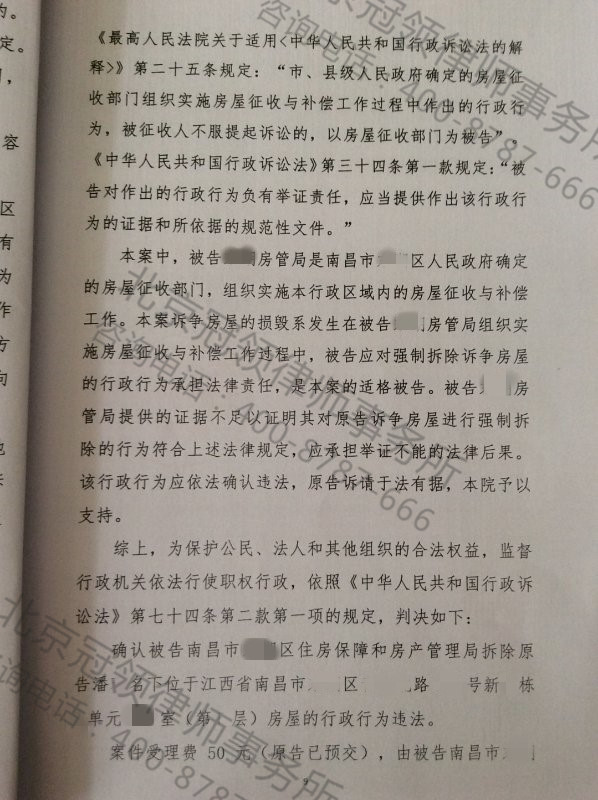 《最高人民法院关于适用<中华人民共和国行政诉讼法的解
释>》第二十五条规定：“市、县级人民政府确定的房屋征
收部门组织实施房屋征收与补偿工作过程中作出的行政行
为，被征收人不服提起诉讼的，以房屋征收部门为被告”。
《中华人民共和国行政诉讼法》第三十四条第一款规定：“被
告对作出的行政行为负有举证责任，应当提供作出该行政行
为的证据和所依据的规范性文件。”
本案中，被告 房管局是南昌市 区人民政府确定
的房屋征收部门，组织实施本行政区域内的房屋征收与补偿
工作。本案诉争房屋的损毁系发生在被告 房管局组织实
施房屋征收与补偿工作过程中，被告应对强制拆除诉争房屋
的行政行为承担法律责任，是本案的适格被告。被告 房
管局提供的证据不足以证明其对原告诉争房屋进行强制拆
除的行为符合上述法律规定，应承担举证不能的法律后果。
该行政行为应依法确认违法，原告诉请于法有据，本院予以
支持。
综上，为保护公民、法人和其他组织的合法权益，监督
行政机关依法行使职权行政，依照《中华人民共和国行政诉
讼法》第七十四条第二款第一项的规定，判决如下：
确认被告南昌市 区住房保障和房产管理局拆除原
告潘 名下位于江西省南昌市 区 路 号新 栋
单元 室（第 层）房屋的行政行为违法。
案件受理费 50 元（原告已预交），由被告南昌市
9
的。
定。
容
区
有
为
作
方
向
北京冠领律师事务所
咨询电话：400-8787-666
北京冠领律师事务所
咨询电话：400-8787-666
北京冠领律师事务所
咨询电话：400-8787-666